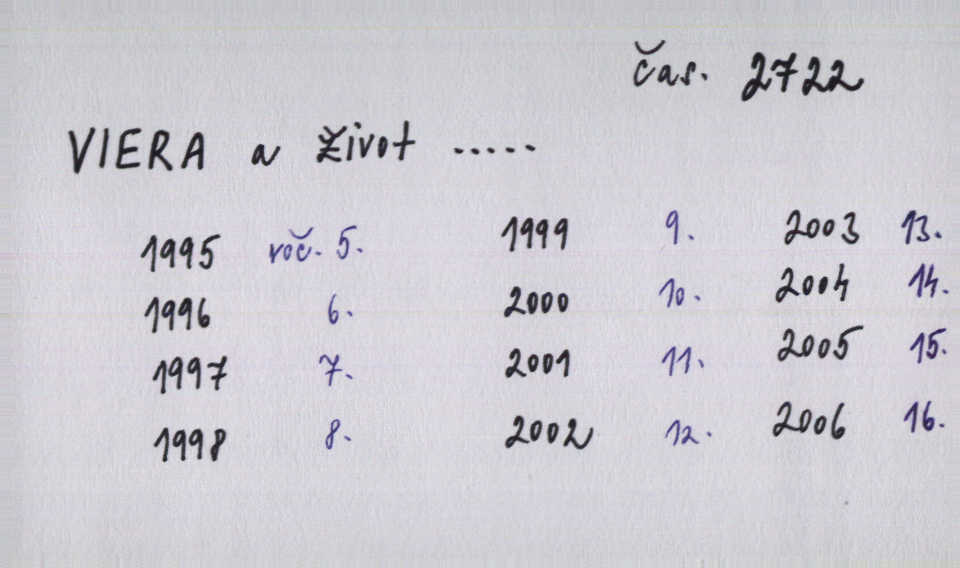 čas. 2722
VIERA a Život .....
1995 roč. 5. 1999 9. 2003 13.
1996 6. 2000 10. 2004 14.
1997 7. 2001 11. 2005 15.
1998 8. 2002 12. 2006 16.